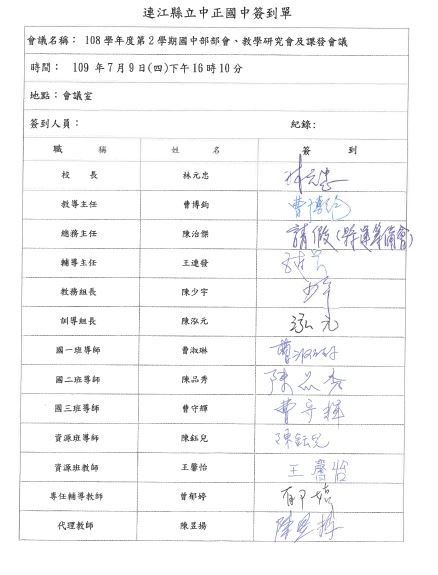 連江縣立中正國中簽到單
會議名稱：108 學年度第 2 學期國中部部會、教學研究會及課發會議
時間： 109 年 7 月 9 日(四)下午 16 時 10 分
地點：會議室
簽到人員： 紀錄:
職 稱 姓 名 簽 到
校 長 林元忠 林元忠
教導主任 曹博鈞 曹博鈞
總務主任 陳治傑 請假(縣運籌備會)
輔導主任 王連發
教務組長 陳少宇 少宇
訓導組長 陳泓元 泓元
國一班導師 曹淑琳 曹淑琳
國二班導師 陳品秀 陳品秀
國三班導師 曹守輝 曹守輝
資源班導師 陳鈺兒 陳鈺兒
資源班教師 王馨怡 王馨怡
專任輔導教師 曾郁婷 郁婷
代理教師 陳昱揚 陳昱揚